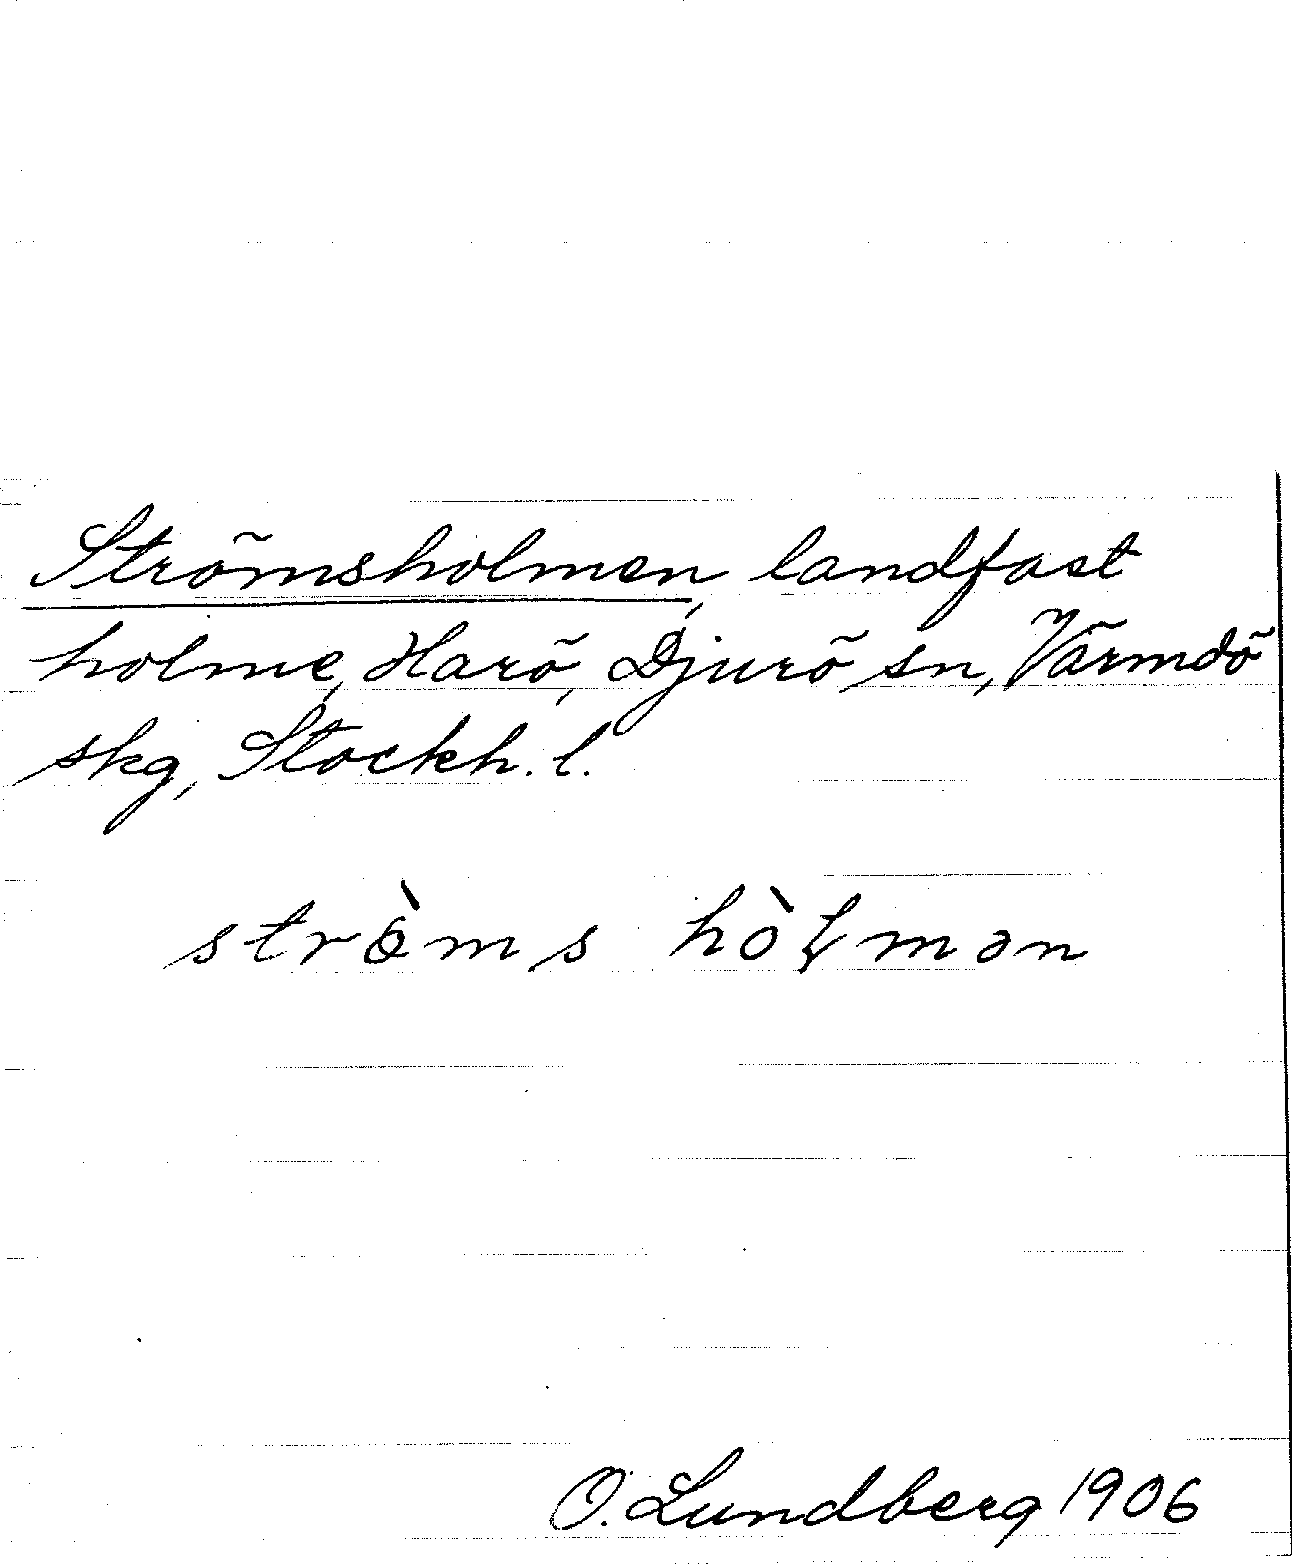 Strömsholmen, landfast
holme, Harö, Djurö sn, Värmdö
skg, Stockh. l.
strò̈ms hòɫmən
O. Lundberg 1906